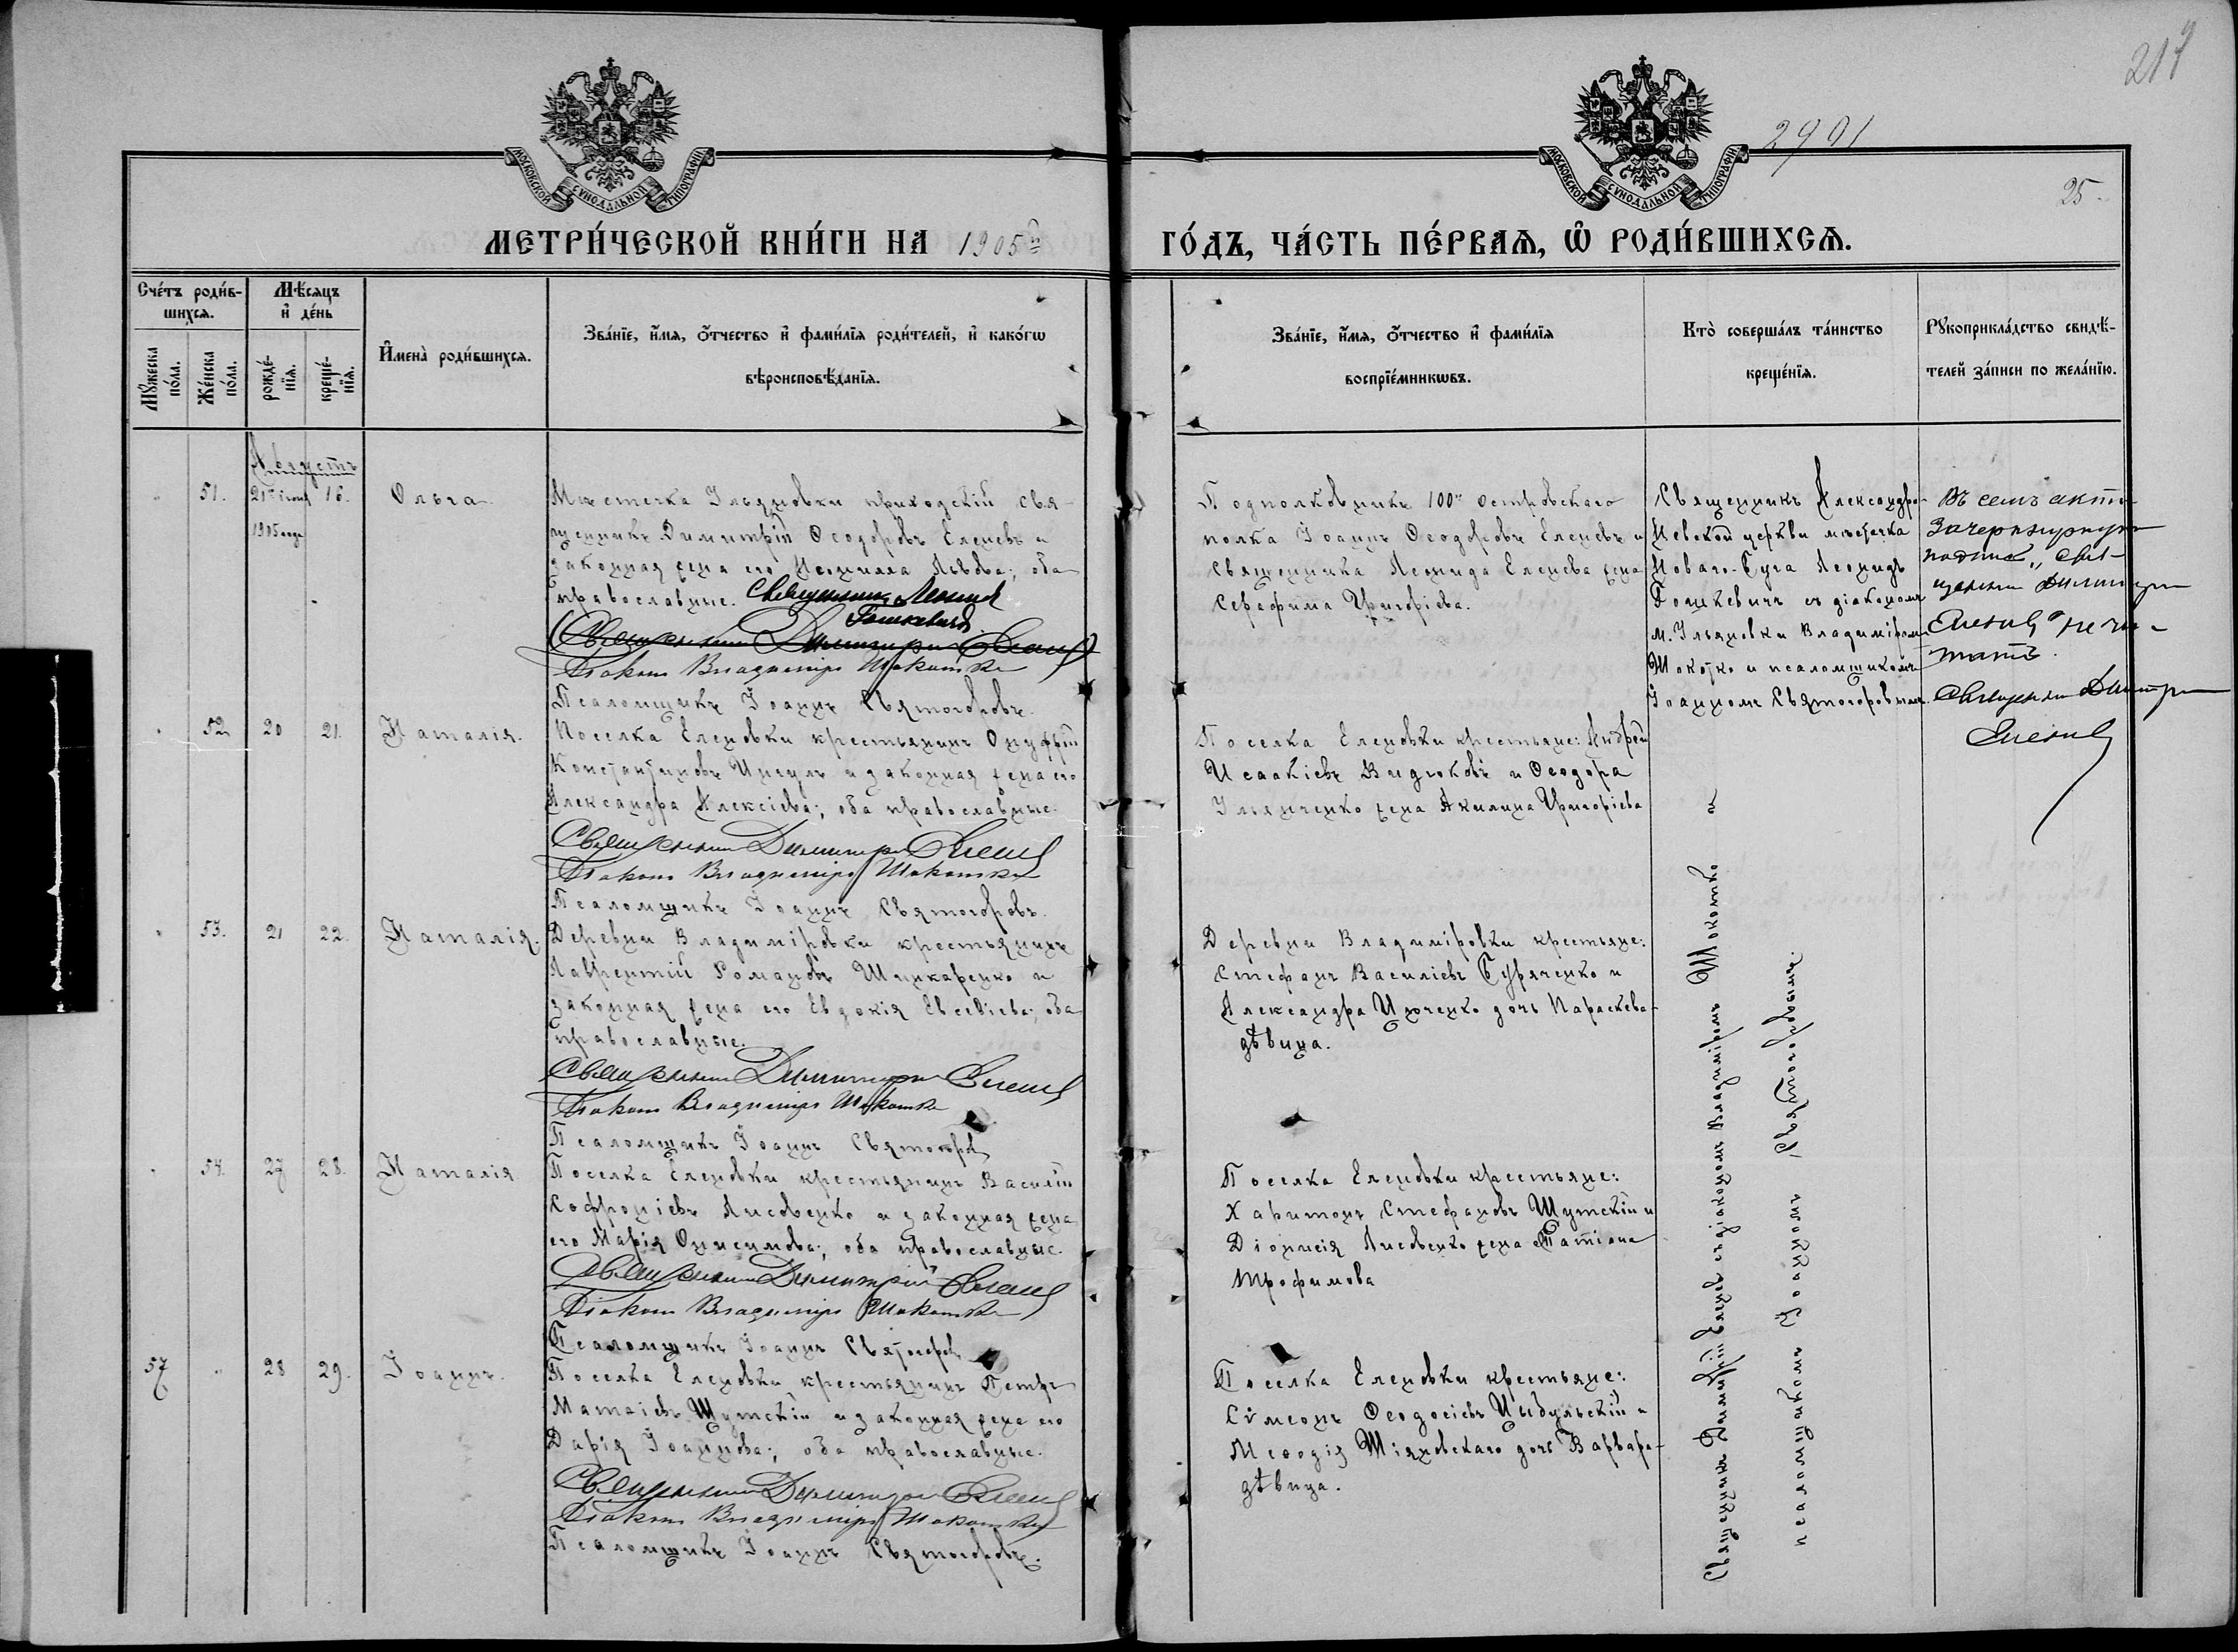 217
2901
25.
МОСКОВСКОЙ СѴНОДАЛЬНОЙ ТИПОГРАФІИ
МОСКОВСКОЙ СѴНОДАЛЬНОЙ ТИПОГРАФІИ
МЕТРИ́ЧЕСКОЙ КНИ́ГИ НА 1905й ГО́ДЪ, ЧА́СТЬ ПЕ́РВАѦ, Ѡ РОДИ́ВШИХСѦ.
Сче́тъ роди́в-
шихсѧ.
Мꙋжеска по́ла.
Же́нска по́ла.
Мѣ́сяцъ и де́нь
рожде́-нїѧ.
креще́-нїѧ.
Имена̀ роди́вшихсѧ.
Зва́нїе, и́мѧ, о́тчество и фами́лїѧ роди́телей, и како́гѡ
вѣроисповѣ́данїѧ.
Зва́нїе, и́мѧ, о́тчество и фами́лїѧ
воспрїе́мникѡвъ.
Кто̀ соверша́лъ та́инство
креще́нїѧ.
Рꙋкоприкла́дство свидѣ́-
телей за́писи по жела́нїю.
Августъ
51. 21го іюня 1905 года 16. Ольга
Мѣстечка Ильяновки приходскій свя-
щенникъ Димитрій Ѳеодоровъ Еленевъ и
законная жена его Неонилла Львова; оба
православные. Священникъ Леонидъ
Гошкевичъ
Священникъ Димитрій Еленевъ
Діаконъ Владиміръ Шокотко
Псаломщикъ Іоаннъ Святогоровъ.
Подполковникъ 100го Островскаго
полка Іоаннъ Ѳеодоровъ Еленевъ и
Священника Леонида Еленева жена
Серафима Григоріева.
Священникъ Александро-
Невской церкви мѣстечка
Новаго-Буга Леонидъ
Гошкевичъ съ діакономъ
м. Ильяновки Владиміромъ
Шокотко и псаломщикомъ
Іоанномъ Святогоровымъ.
Въ семъ актѣ
зачеркнутую
подпись „свя-
щенникъ Димитрій
Еленевъ“ не чи-
тать.
Священникъ Димитрій
Еленевъ
52. 20 21. Наталія.
Поселка Еленовки крестьянинъ Онуфрій
Константиновъ и законная жена его
Александра Алексіева; оба православные.
Священникъ Димитрій Еленевъ
Діаконъ Владиміръ Шокотко
Псаломщикъ Іоаннъ Святогоровъ.
Поселка Еленовки крестьяне: Андрей
Исаакіевъ Видюковъ и Ѳеодора
Ильинченко жена Акилина Григоріева
53. 21 22. Наталія.
Деревни Владиміровки крестьянинъ
Лаврентій Романовъ Шинкаренко и
законная жена его Евдокія Евсевіева; оба
православные.
Священникъ Димитрій Еленевъ
Діаконъ Владиміръ Шокотко
Псаломщикъ Іоаннъ Святогоровъ
Деревни Владиміровки крестьяне:
Стефанъ Василіевъ Буряченко и
Александра дочь Параскева-
дѣвица.
54. 27 28. Наталія
Поселка Еленовки крестьянинъ Василій
Софроніевъ Лисовенко и законная жена
его Марія Онисимова; оба православные.
Священникъ Димитрій Еленевъ
Діаконъ Владиміръ Шокотко
Псаломщикъ Іоаннъ Святогоровъ
Поселка Еленовки крестьяне:
Харитонъ Стефановъ Шутскій и
Діонисія Лисовенко жена Татіана
Трофимова
57 28 29. Іоаннъ.
Поселка Еленовки крестьянинъ Петръ
Матѳіевъ Шутскій и законная жена его
Дарія Іоаннова; оба православные.
Священникъ Димитрій Еленевъ
Діаконъ Владиміръ Шокотко
Псаломщикъ Іоаннъ Святогоровъ.
Поселка Еленовки крестьяне:
Сѵмеонъ Ѳеодосіевъ Цыбульскій и
Меѳодія Шіяновскаго дочь Варвара-
дѣвица.
Священникъ Димитрій Еленевъ съ діакономъ Владиміромъ Шокотко и
псаломщикомъ Іоанномъ Святогоровымъ.